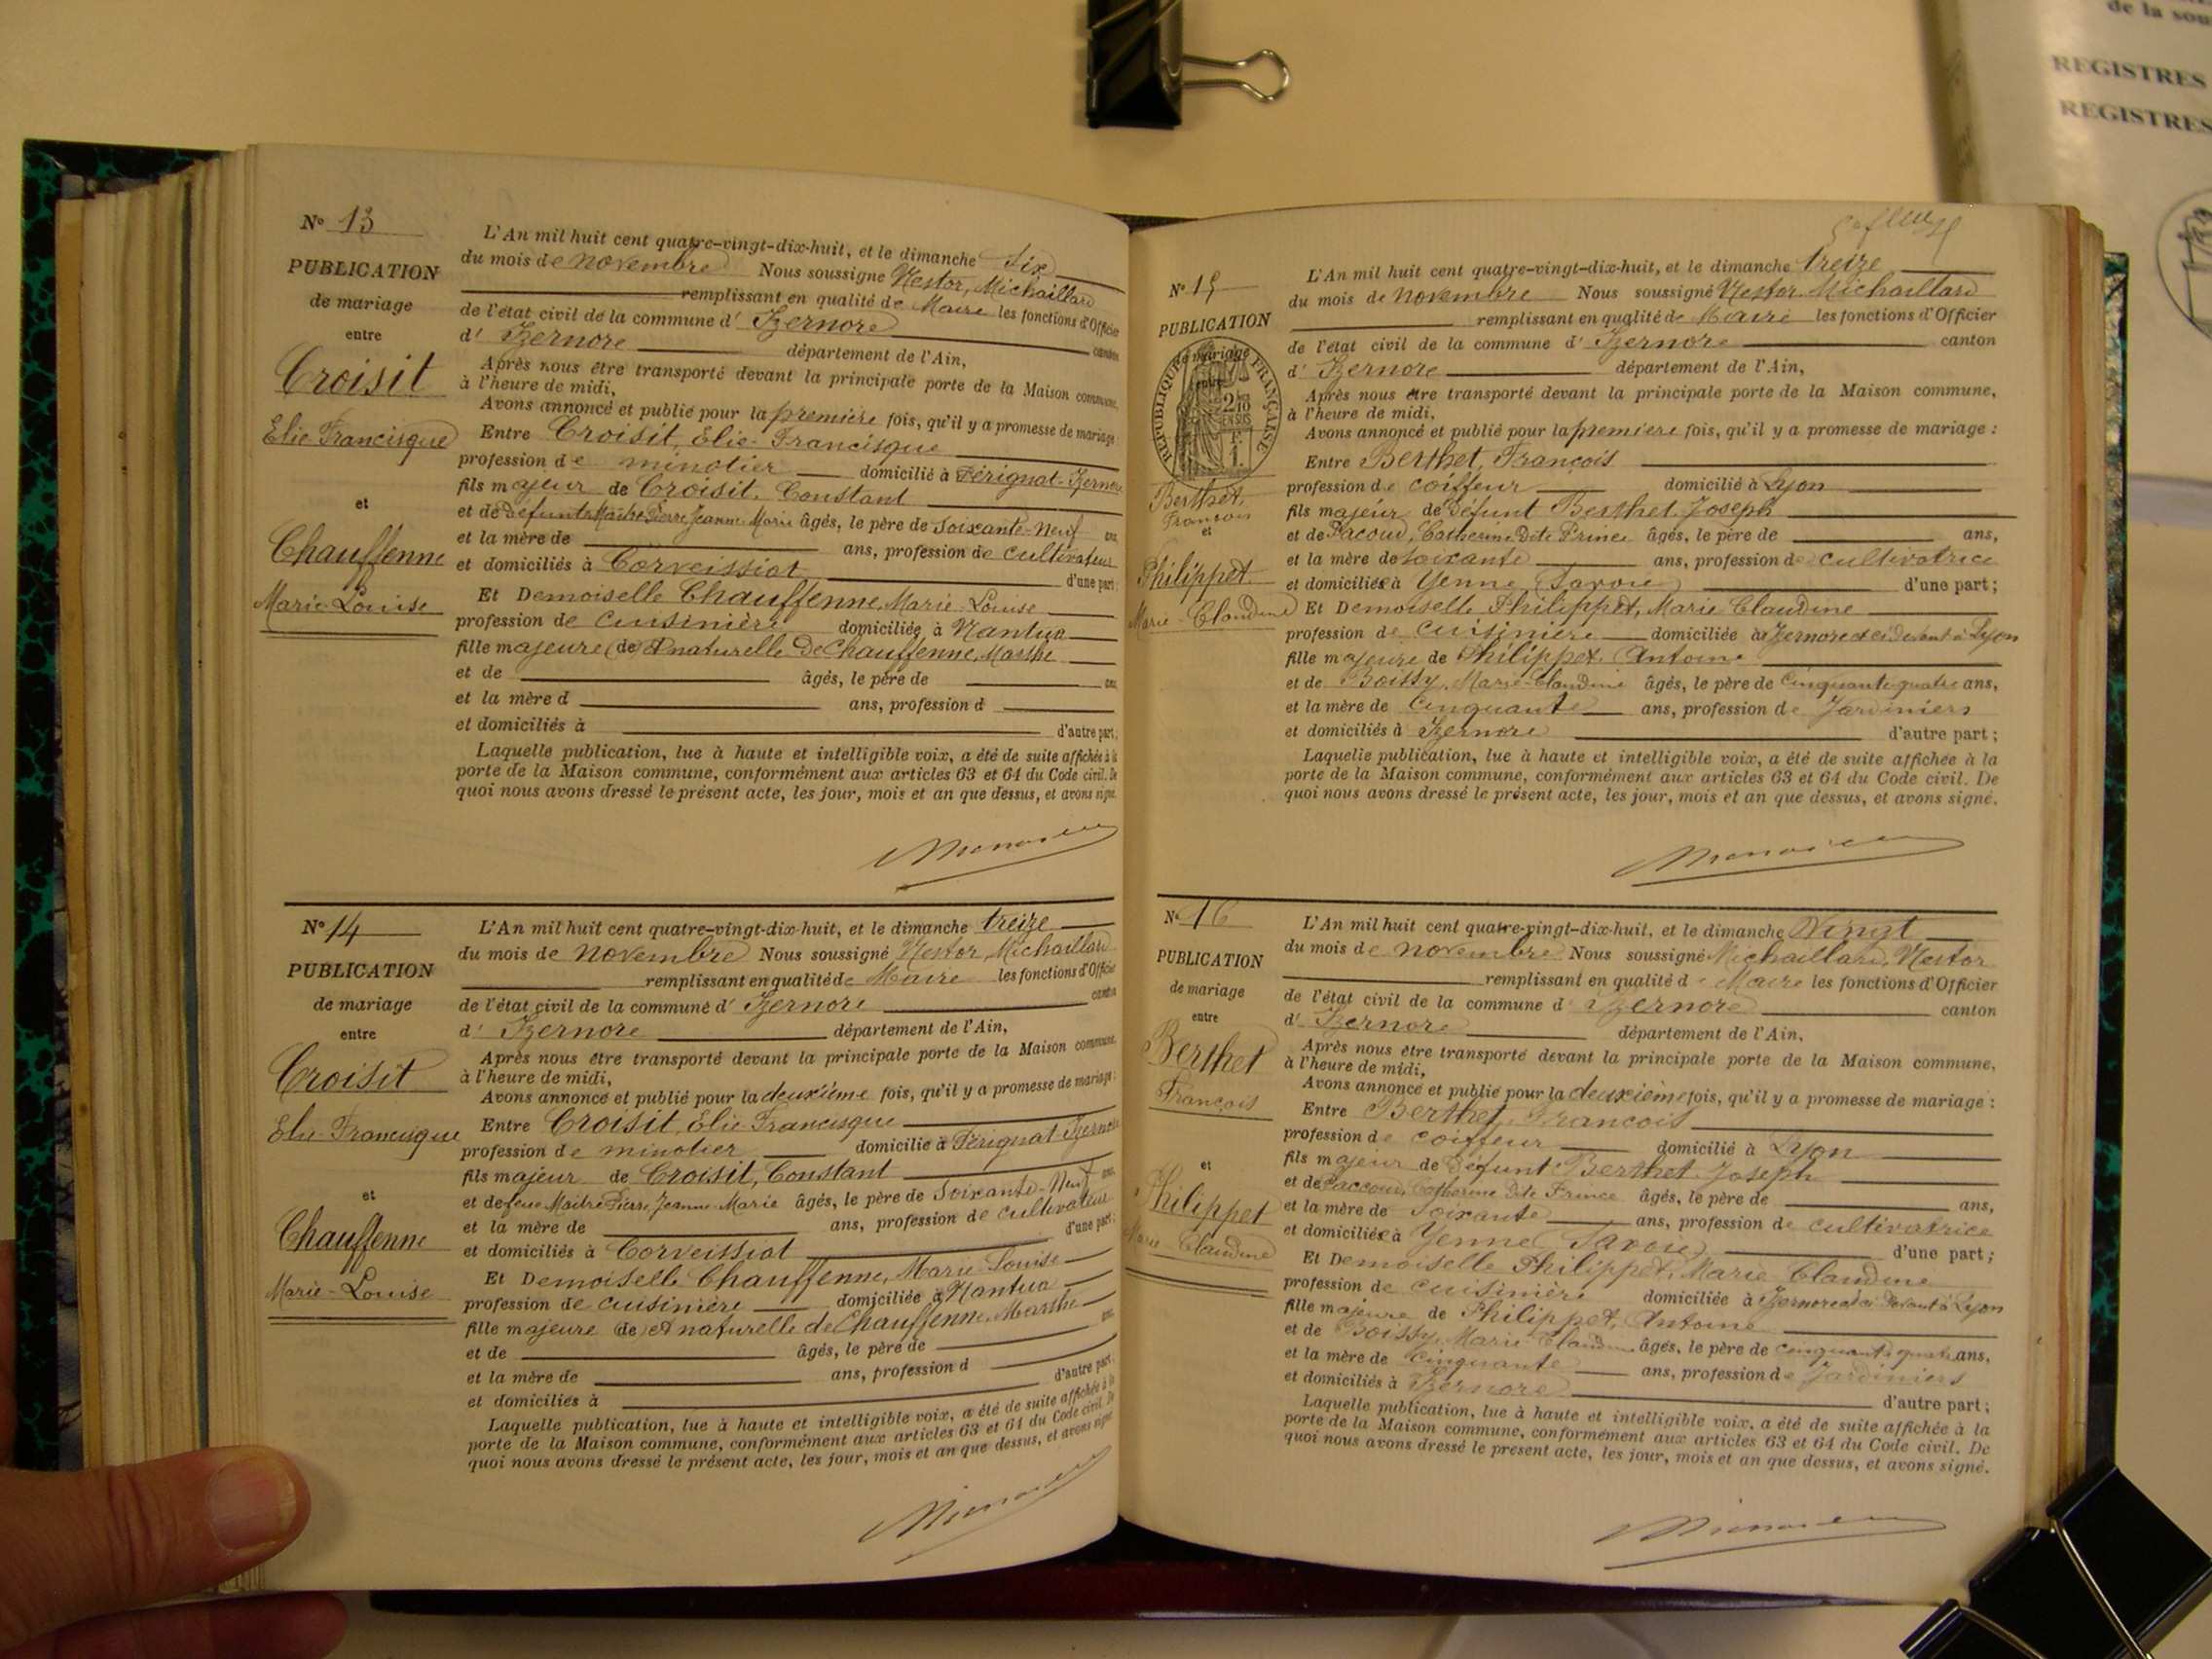 de la sou
REGISTRES
REGISTRES
N° 13
PUBLICATION
de mariage
entre
Croisit
Elie Francisque
et
Chauffenne
Marie-Louise
L'An mil huit cent quatre-vingt-dix-huit, et le dimanche Six
du mois de novembre Nous soussigné Nestor, Michaillard
remplissant en qualité de Maire les fonctions d'Officier
de l'état civil de la commune d' Izernore canton
d' Izernore département de l'Ain,
Après nous être transporté devant la principale porte de la Maison commune,
à l'heure de midi,
Avons annoncé et publié pour la première fois, qu'il y a promesse de mariage :
Entre Croisit, Elie-Francisque
profession de minotier domicilié à Pérignat-Izernore
fils majeur de Croisit, Constant
et de défunte Maître Pierre Jeanne Marie âgés, le père de Soixante-Neuf ans
et la mère de ans, profession de cultivateur
et domiciliés à Corveissiat d'une part;
Et Demoiselle Chauffenne, Marie-Louise
profession de cuisinière domiciliée à Nantua
fille majeure (de) et naturelle de Chauffenne, Marthe
et de âgés, le père de ans
et la mère d ans, profession d
et domiciliés à d'autre part;
Laquelle publication, lue à haute et intelligible voix, a été de suite affichée à la
porte de la Maison commune, conformément aux articles 63 et 64 du Code civil. De
quoi nous avons dressé le présent acte, les jour, mois et an que dessus, et avons signé.
N° 14
PUBLICATION
de mariage
entre
Croisit
Elie-Francisque
et
Chauffenne
Marie-Louise
L'An mil huit cent quatre-vingt-dix-huit, et le dimanche treize
du mois de novembre Nous soussigné Nestor, Michaillard
remplissant en qualité de Maire les fonctions d'Officier
de l'état civil de la commune d' Izernore canton
d' Izernore département de l'Ain,
Après nous être transporté devant la principale porte de la Maison commune,
à l'heure de midi,
Avons annoncé et publié pour la deuxième fois, qu'il y a promesse de mariage :
Entre Croisit, Elie-Francisque
profession de minotier domicilié à Pérignat Izernore
fils majeur de Croisit, Constant
et de feue Maître Pierre, Jeanne-Marie âgés, le père de Soixante-Neuf ans
et la mère de ans, profession de cultivateur
et domiciliés à Corveissiat d'une part;
Et Demoiselle Chauffenne, Marie-Louise
profession de cuisinière domiciliée à Nantua
fille majeure (de) et naturelle de Chauffenne, Marthe
et de âgés, le père de ans
et la mère de ans, profession d
et domiciliés à d'autre part.
Laquelle publication, lue à haute et intelligible voix, a été de suite affichée à la
porte de la Maison commune, conformément aux articles 63 et 64 du Code civil. De
quoi nous avons dressé le présent acte, les jour, mois et an que dessus, et avons signé
N° 15
PUBLICATION
de mariage
entre
RÉPUBLIQUE FRANÇAISE
2/10
EN SUS
1F.
Berthet,
François
et
Philippet
Marie-Claudine
L'An mil huit cent quatre-vingt-dix-huit, et le dimanche treize
du mois de novembre Nous soussigné Nestor Michaillard
remplissant en qualité de Maire les fonctions d'Officier
de l'état civil de la commune d' Izernore canton
d' Izernore département de l'Ain,
Après nous être transporté devant la principale porte de la Maison commune,
à l'heure de midi,
Avons annoncé et publié pour la première fois, qu'il y a promesse de mariage :
Entre Berthet, François
profession de coiffeur domicilié à Lyon
fils majeur de défunt Berthet Joseph
et de Pacoud, Catherine Dite Prince âgés, le père de ans,
et la mère de soixante ans, profession de cultivatrice
et domiciliés à Yenne (Savoie) d'une part;
Et Demoiselle Philippet, Marie Claudine
profession de cuisinière domiciliée à Izernore et ci devant à Lyon
fille majeure de Philippet, Antoine
et de Boissy, Marie-Claudine âgés, le père de Cinquante quatre ans,
et la mère de Cinquante ans, profession de Jardiniers
et domiciliés à Izernore d'autre part;
Laquelle publication, lue à haute et intelligible voix, a été de suite affichée à la
porte de la Maison commune, conformément aux articles 63 et 64 du Code civil. De
quoi nous avons dressé le présent acte, les jour, mois et an que dessus, et avons signé.
N° 16
PUBLICATION
de mariage
entre
Berthet
François
et
Philippet
Marie-Claudine
L'An mil huit cent quatre-vingt-dix-huit, et le dimanche Vingt
du mois de novembre Nous soussigné Michaillard, Nestor
remplissant en qualité de Maire les fonctions d'Officier
de l'état civil de la commune d' Izernore canton
d' Izernore département de l'Ain,
Après nous être transporté devant la principale porte de la Maison commune,
à l'heure de midi,
Avons annoncé et publié pour la deuxième fois, qu'il y a promesse de mariage :
Entre Berthet, François
profession de coiffeur domicilié à Lyon
fils majeur de défunt Berthet Joseph
et de Paccoud, Catherine Dite Prince âgés, le père de ans,
et la mère de Soixante ans, profession de cultivatrice
et domiciliés à Yenne (Savoie) d'une part;
Et Demoiselle Philippet, Marie Claudine
profession de cuisinière domiciliée à Izernore et ci devant à Lyon
fille majeure de Philippet, Antoine
et de Boissy, Marie Claudine âgés, le père de cinquante quatre ans,
et la mère de cinquante ans, profession de Jardiniers
et domiciliés à Izernore d'autre part;
Laquelle publication, lue à haute et intelligible voix, a été de suite affichée à la
porte de la Maison commune, conformément aux articles 63 et 64 du Code civil. De
quoi nous avons dressé le présent acte, les jour, mois et an que dessus, et avons signé.